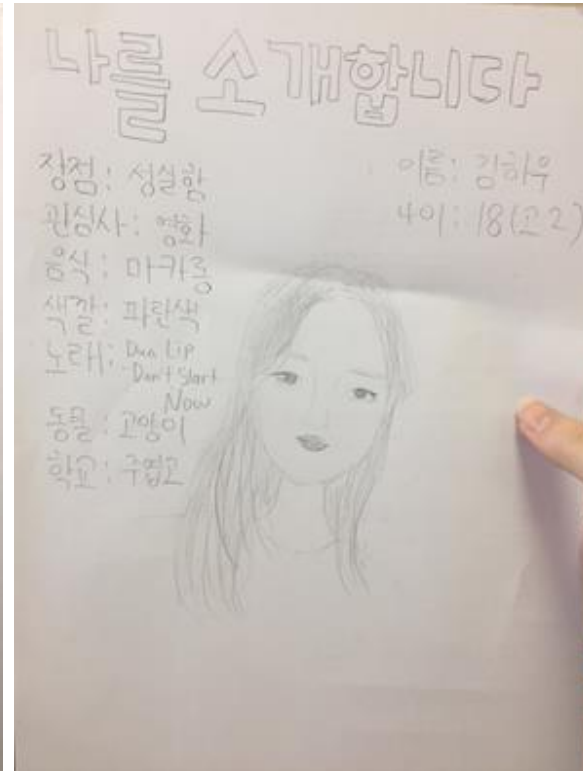 나를 소개합니다
장점: 성실함
관심사: 영화
음식: 마카롱
색깔: 파란색
노래: Dua Lip
Don't Start
Now
동물: 고양이
학교: 주엽고
이름: 김하우
나이: 18(고2)